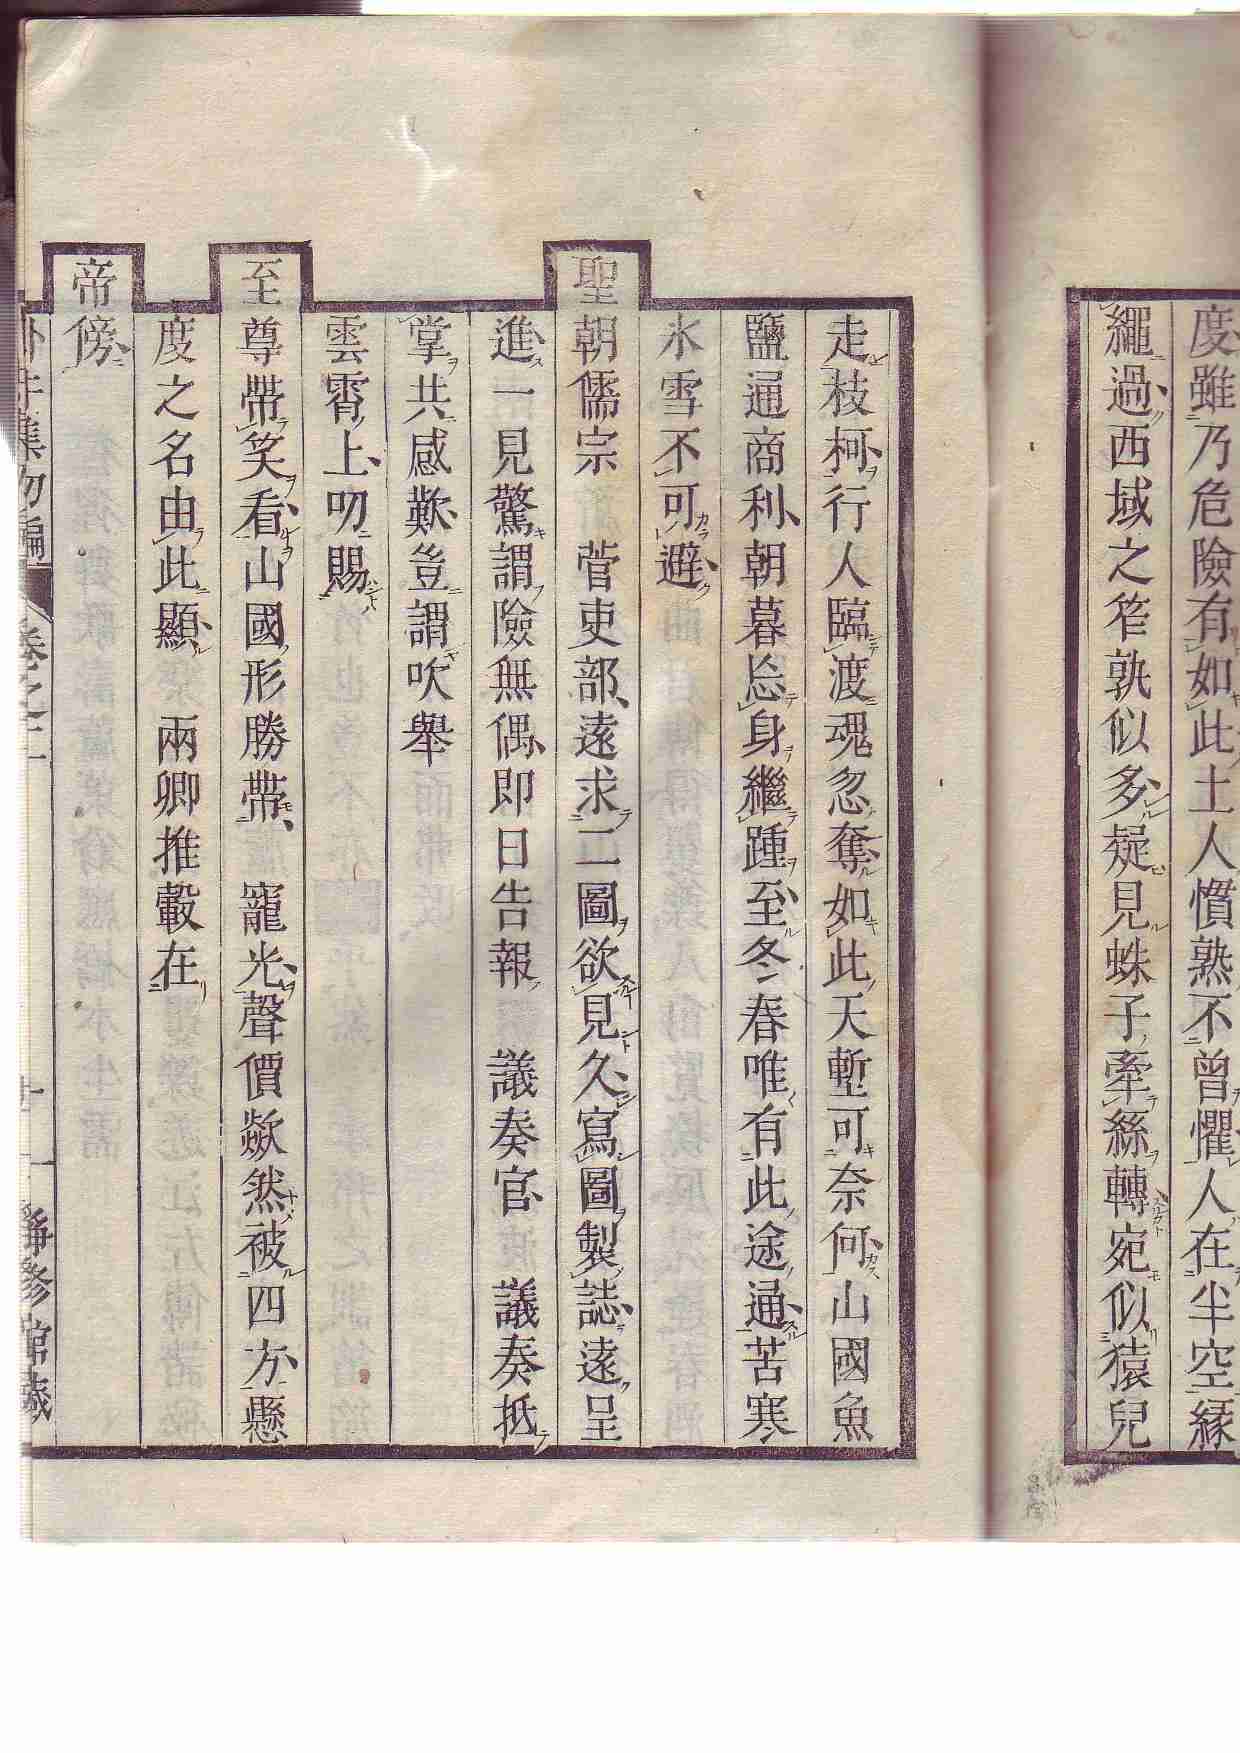 度雖乃危險有如此土人慣熟不曾懼人在半空縁
繩過西域之笮孰似多疑見蛛子牽絲轉宛似猿兒
走枝柯行人臨渡魂忽奪如此天塹可奈何山國魚
鹽通商利朝暮忘身繼踵至冬春唯有此途通苦寒
氷雪不可避
聖朝儒宗 菅吏部遠求二圖欲見久寫圖製誌遠呈
進一見驚謂險無偶即日告報 議奏官 議奏抵
掌共感歎豈謂吹舉
雲霄上叨賜
至尊帶笑看山國形勝帶 寵光聲價歘然被四方懸
度之名由此顯 兩卿推轂在
帝傍
集初編 卷之二 靜修館藏